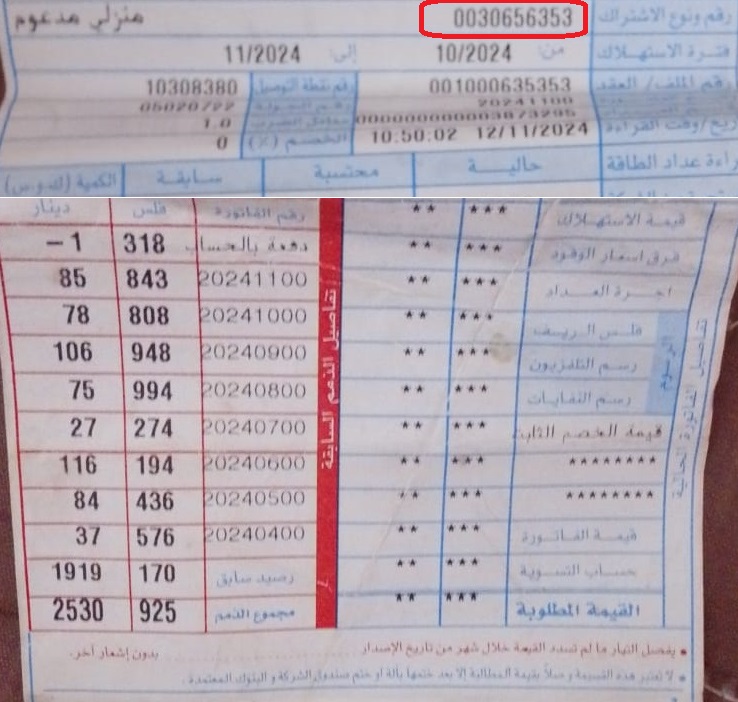 رقم ونوع الاشتراك 0030656353 منزلي مدعوم
فترة الاستهلاك من: 10/2024 إلى: 11/2024
رقم الملف/ العقد 001000635353 رقم نقطة التوصيل 10308380
20241100 05020722
0000000000003873295 معامل الضرب 1.0
تاريخ/وقت القراءة 12/11/2024 10.50.02 الخصم (%) 0
قراءة عداد الطاقة حالية محتسبة سابقة الكمية (ك.و.س)
قيمة الاستهلاك *** ** رقم الفاتورة فلس دينار
فرق اسعار الوقود *** ** دفعة بالحساب 318 1–
اجرة العداد *** ** 20241100 843 85
فلس الريف *** ** 20241000 808 78
رسم التلفزيون *** ** 20240900 948 106
رسم النفايات *** ** 20240800 994 75
قيمة الخصم الثابت *** ** 20240700 274 27
******** *** ** 20240600 194 116
******** *** ** 20240500 436 84
قيمة الفاتورة *** ** 20240400 576 37
حساب التسوية *** ** رصيد سابق 170 1919
القيمة المطلوبة *** ** مجموع الذمم 925 2530
الرسوم
تفاصيل الفاتورة الحالية
تفاصيل الذمم السابقة
• يفصل التيار ما لم تسدد القيمة خلال شهر من تاريخ الإصدار ............ بدون إشعار آخر.
• لا تعتبر هذه القسيمة وصلاً بقيمة المطالبة إلا بعد ختمها بآلة او ختم صندوق الشركة و البنوك المعتمدة.